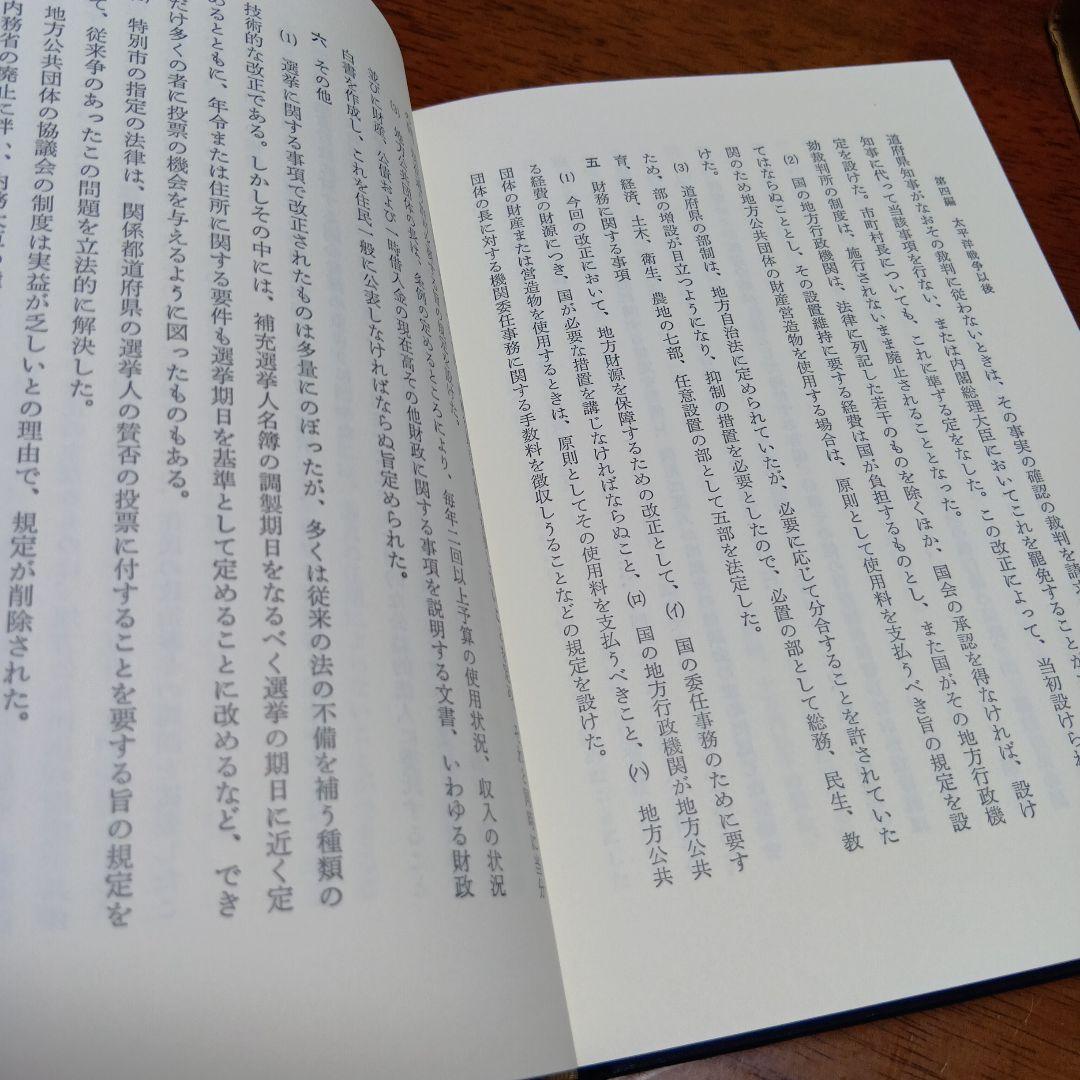 第四編　太平洋戦争以後
道府県知事がなおその裁判に従わないときは、その事実の確認の裁判を請求
知事に代って当該事項を行ない、または内閣総理大臣においてこれを罷免することが
定を設けた。市町村長についても、これに準ずる定をなした。この改正によって、当初設けられ
劾裁判所の制度は、施行されないまま廃止されることとなった。
(2)　国の地方行政機関は、法律に列記した若干のものを除くほか、国会の承認を得なければ、設け
てはならぬこととし、その設置維持に要する経費は国が負担するものとし、また国がその地方行政機
関のため地方公共団体の財産営造物を使用する場合は、原則として使用料を支払うべき旨の規定を設
けた。
(3)　道府県の部制は、地方自治法に定められていたが、必要に応じて分合することを許されていた
ため、部の増設が目立つようになり、抑制の措置を必要としたので、必置の部として総務、民生、教
育、経済、土木、衛生、農地の七部、任意設置の部として五部を法定した。
五　財務に関する事項
(1)　今回の改正において、地方財源を保障するための改正として、(イ)　国の委任事務のために要す
る経費の財源につき、国が必要な措置を講じなければならぬこと、(ロ)　国の地方行政機関が地方公共
団体の財産または営造物を使用するときは、原則としてその使用料を支払うべきこと、(ハ)　地方公共
団体の長に対する機関委任事務に関する手数料を徴収しうることなどの規定を設けた。
(3)　地方公共団体の長は、条例の定めるところにより、毎年二回以上予算の使用状況、収入の状況
並びに財産、公債および一時借入金の現在高その他財政に関する事項を説明する文書、いわゆる財政
白書を作成し、これを住民一般に公表しなければならぬ旨定められた。
六　その他
(1)　選挙に関する事項で改正されたものは多量にのぼったが、多くは従来の法の不備を補う種類の
技術的な改正である。しかしその中には、補充選挙人名簿の調製期日をなるべく選挙の期日に近く定
めるとともに、年令または住所に関する要件も選挙期日を基準として定めることに改めるなど、でき
だけ多くの者に投票の機会を与えるように図ったものもある。
特別市の指定の法律は、関係都道府県の選挙人の賛否の投票に付することを要する旨の規定を
て、従来争のあったこの問題を立法的に解決した。
地方公共団体の協議会の制度は実益が乏しいとの理由で、規定が削除された。
内務省の廃止に伴